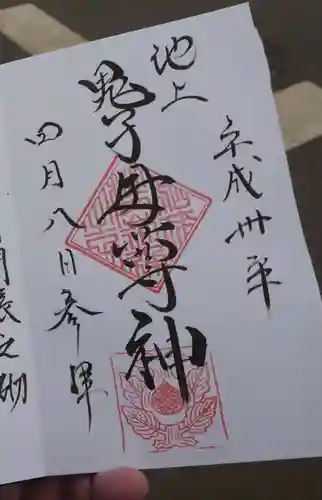 平成卅年
池上
鬼子母尊神
四月八日参拝